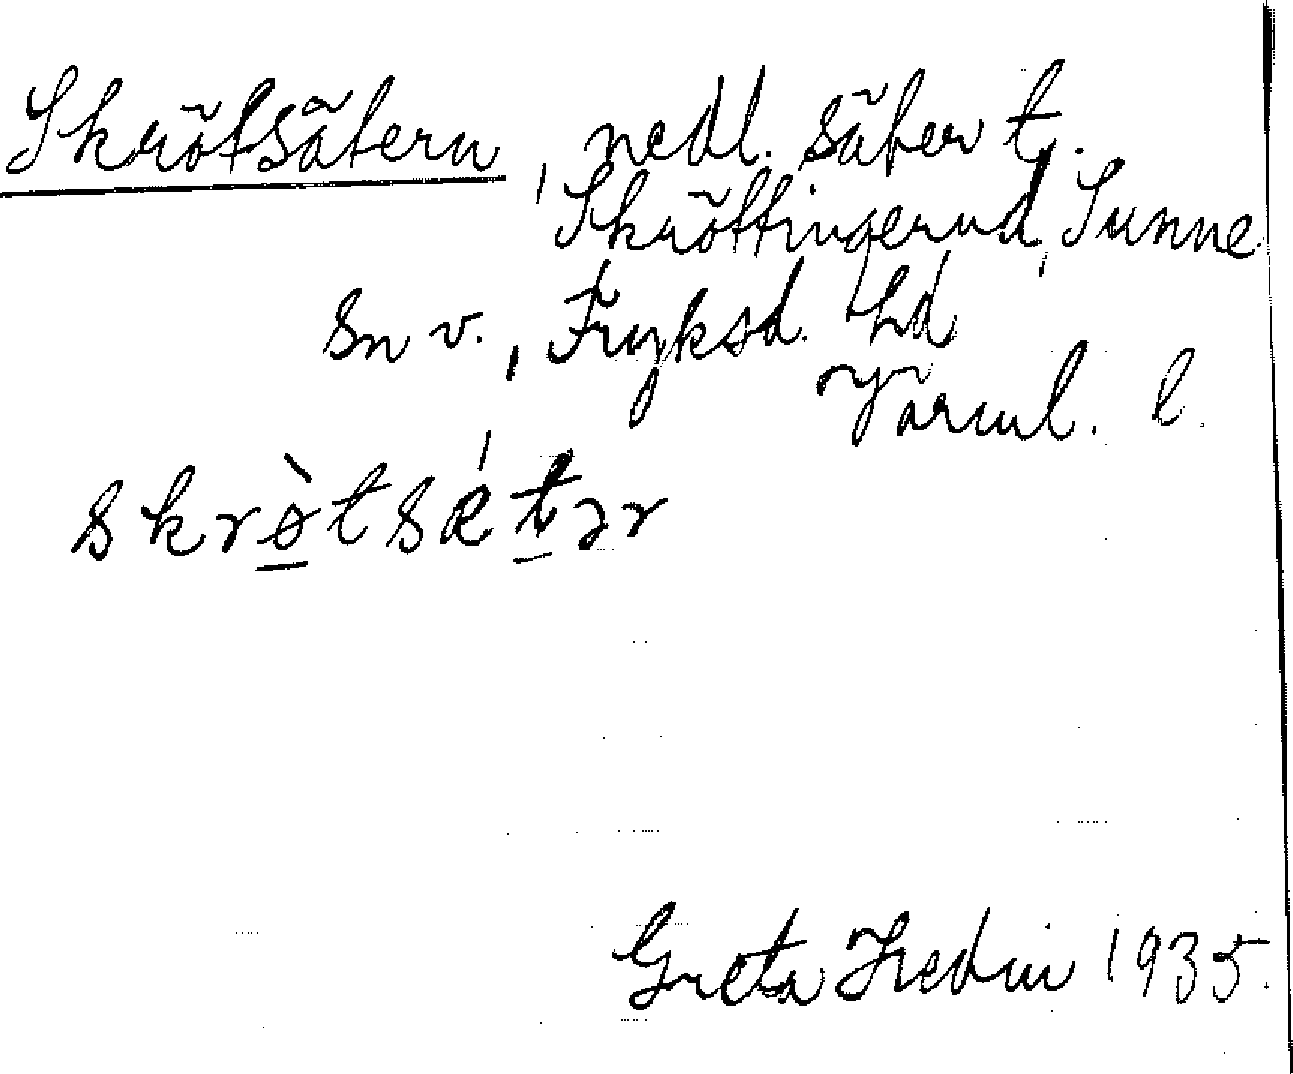 Skrötsätern, nedl. säter t.
Skröttingerud, Sunne
sn v., Fryksd. hd
Värml. l.
skrø̀tsǽtər
Greta Hedin 1935.